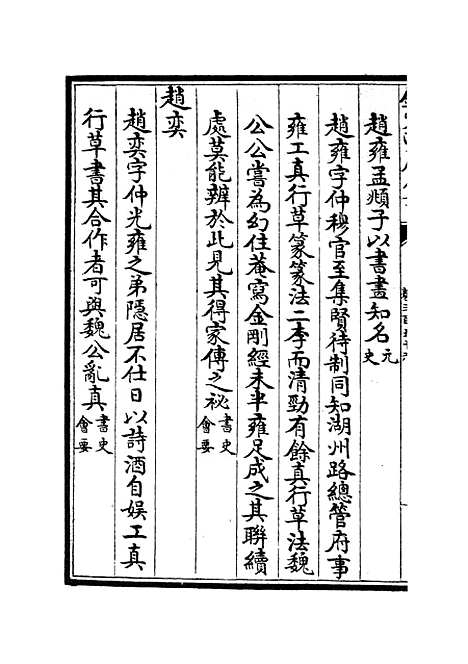 趙雍孟頫子以書畫知名元史
趙雍字仲穆官至集賢待制同知湖州路總管府事
雍工真行草篆篆法二李而清勁有餘真行草法魏
公公嘗為幻住菴寫金剛經未半雍足成之其聯續
處莫能辨於此見其得家傳之祕書史會要
趙奕
趙奕字仲光雍之弟隱居不仕日以詩酒自娱工真
行草書其合作者可與魏公亂真書史會要